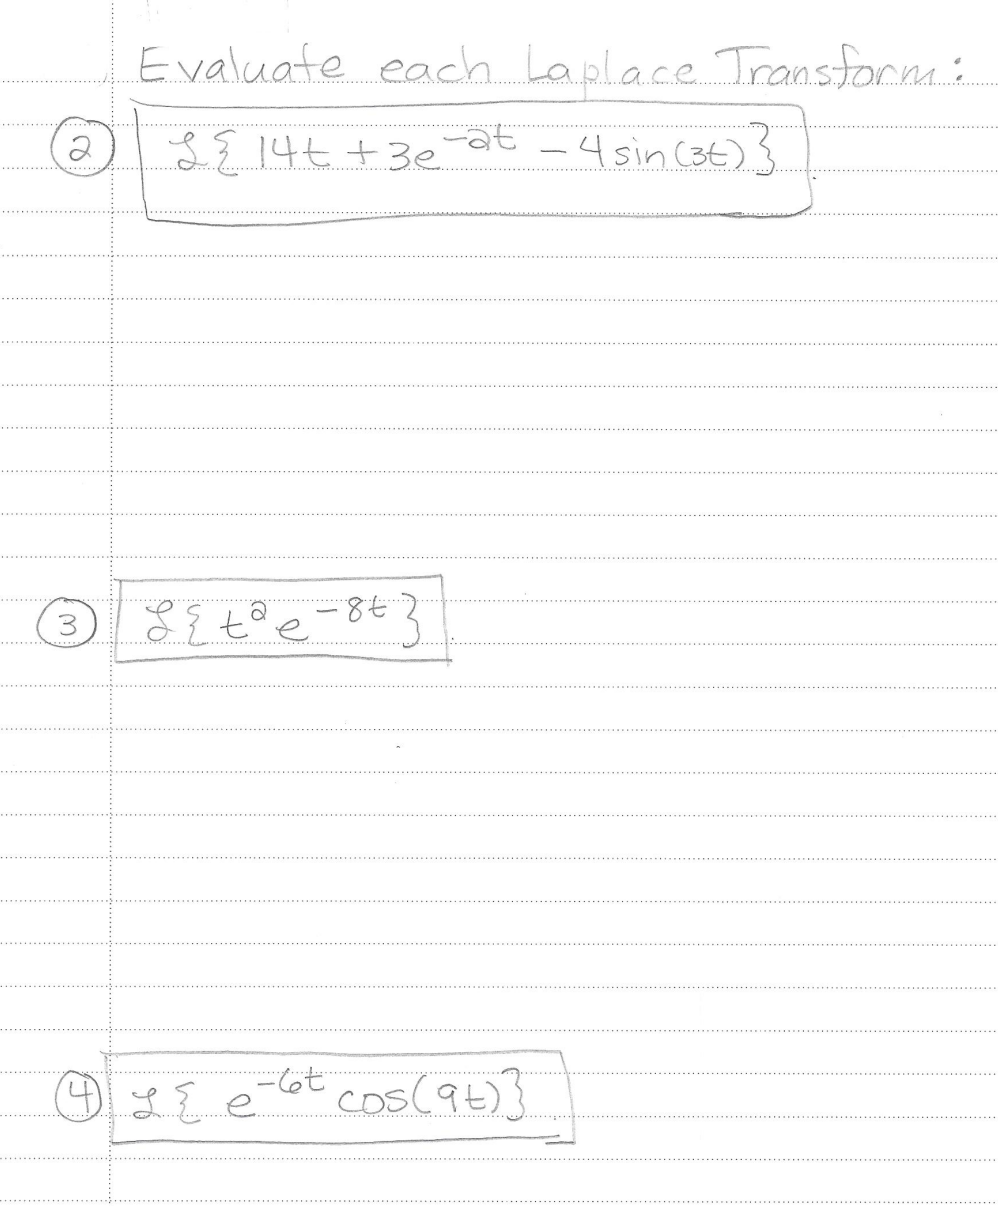 Evaluate each Laplace Transform:
② ℒ{14t + 3e^{-2t} - 4 sin(3t)}
③ ℒ{t²e^{-8t}}
④ ℒ{e^{-6t} cos(9t)}